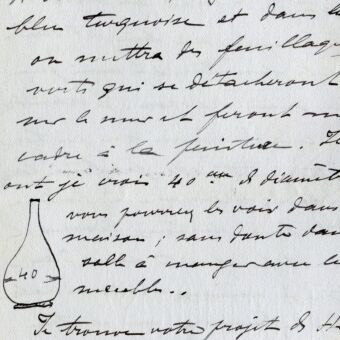 bleu turquoise et dans l
on mettra des feuillage
verts qui se détacheront
sur le mur et feront un
cadre à la peinture. Ils
ont je crois 40 cm de diamèt
vous pourrez les voir dans
maison ; sans doute dans
40
salle à manger avec le
meubles..
Je trouve votre projet de H